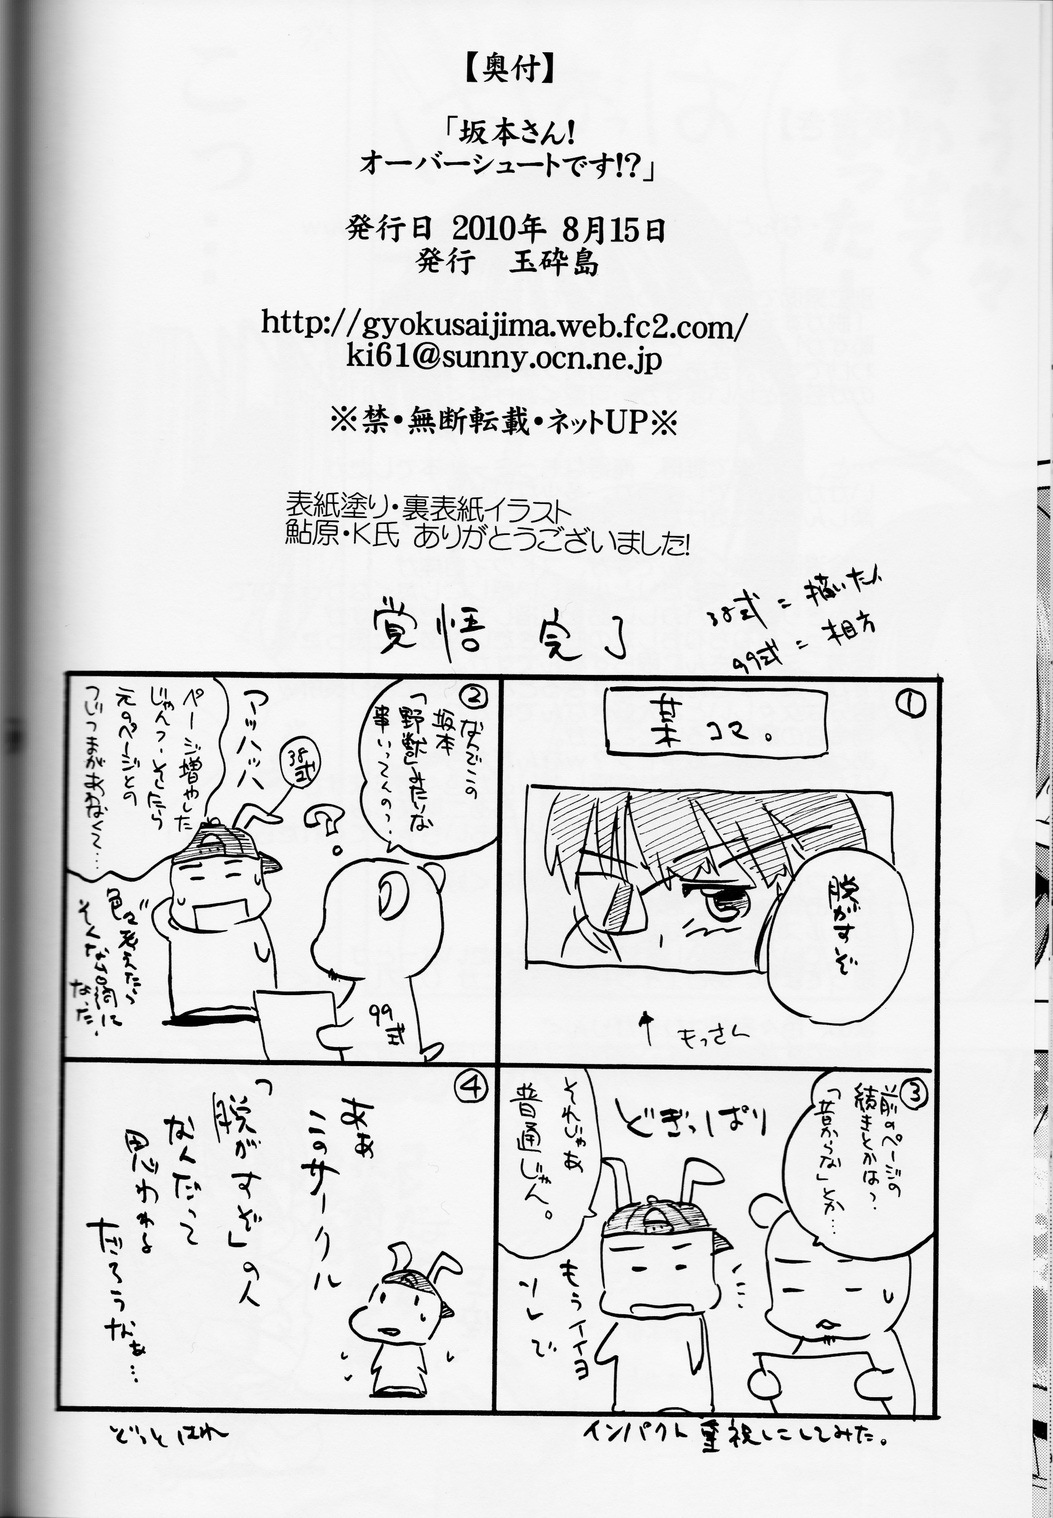 【奥付】
「坂本さん!
オーバーシュートです!?」
発行日 2010年 8月15日
発行 玉砕島
http://gyokusaijima.web.fc2.com/
ki61@sunny.ocn.ne.jp
※禁・無断転載・ネットUP※
表紙塗り・裏表紙イラスト
鮎原・K氏 ありがとうございました!
覚悟 完了
38式 = 描いた人
99式 = 相方
①
某コマ。
脱がすぞ
↑ もっさん
②
なんでこの
坂本
「野獣」みたいな
事いってんの?
38式
アッハッハ
ページ増やした
じゃん?そしたら
元のページとの
つじつまがあわなくて…
色々考えたら
そんな台詞に
なった。
99式
③
前のページの
続きとかは?
「昔からな」とか…
どきっぱり
それじゃあ
普通じゃん。
もうイイヨ
ソレで
④
ああ
このサークル
「脱がすぞ」の人
なんだって
思われる
だろうなぁ…
インパクト重視にしてみた。
どっとはれ